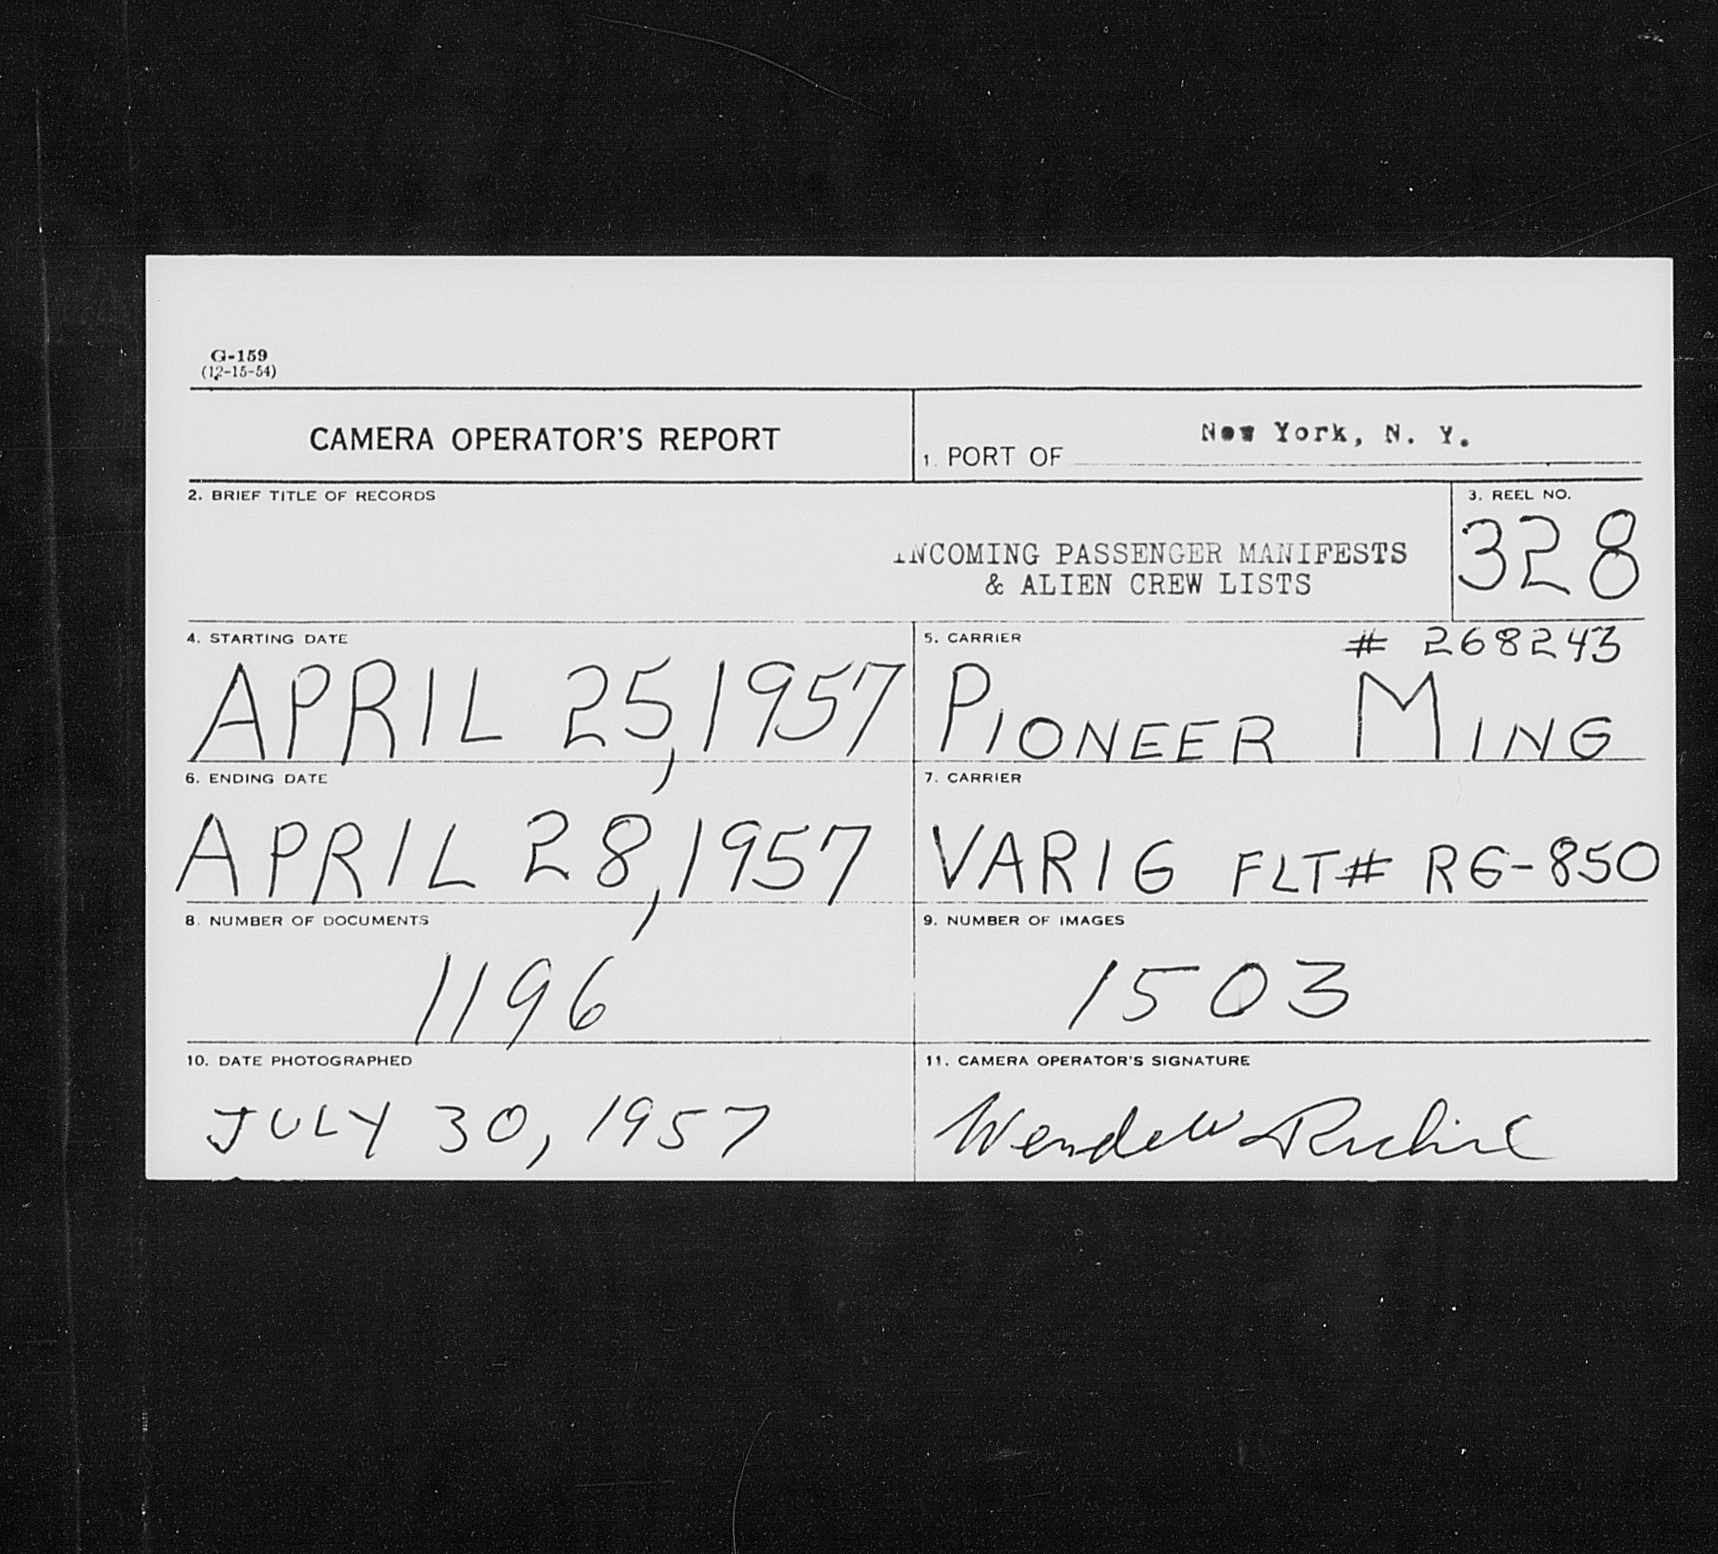 G-159
(12-15-54)
CAMERA OPERATOR'S REPORT
1. PORT OF New York, N. Y.
2. BRIEF TITLE OF RECORDS
INCOMING PASSENGER MANIFESTS
& ALIEN CREW LISTS
3. REEL NO.
328
4. STARTING DATE
APRIL 25, 1957
5. CARRIER
# 268243
PIONEER MING
6. ENDING DATE
APRIL 28, 1957
7. CARRIER
VARIG FLT# RG-850
8. NUMBER OF DOCUMENTS
1196
9. NUMBER OF IMAGES
1503
10. DATE PHOTOGRAPHED
JULY 30, 1957
11. CAMERA OPERATOR'S SIGNATURE
Wendell